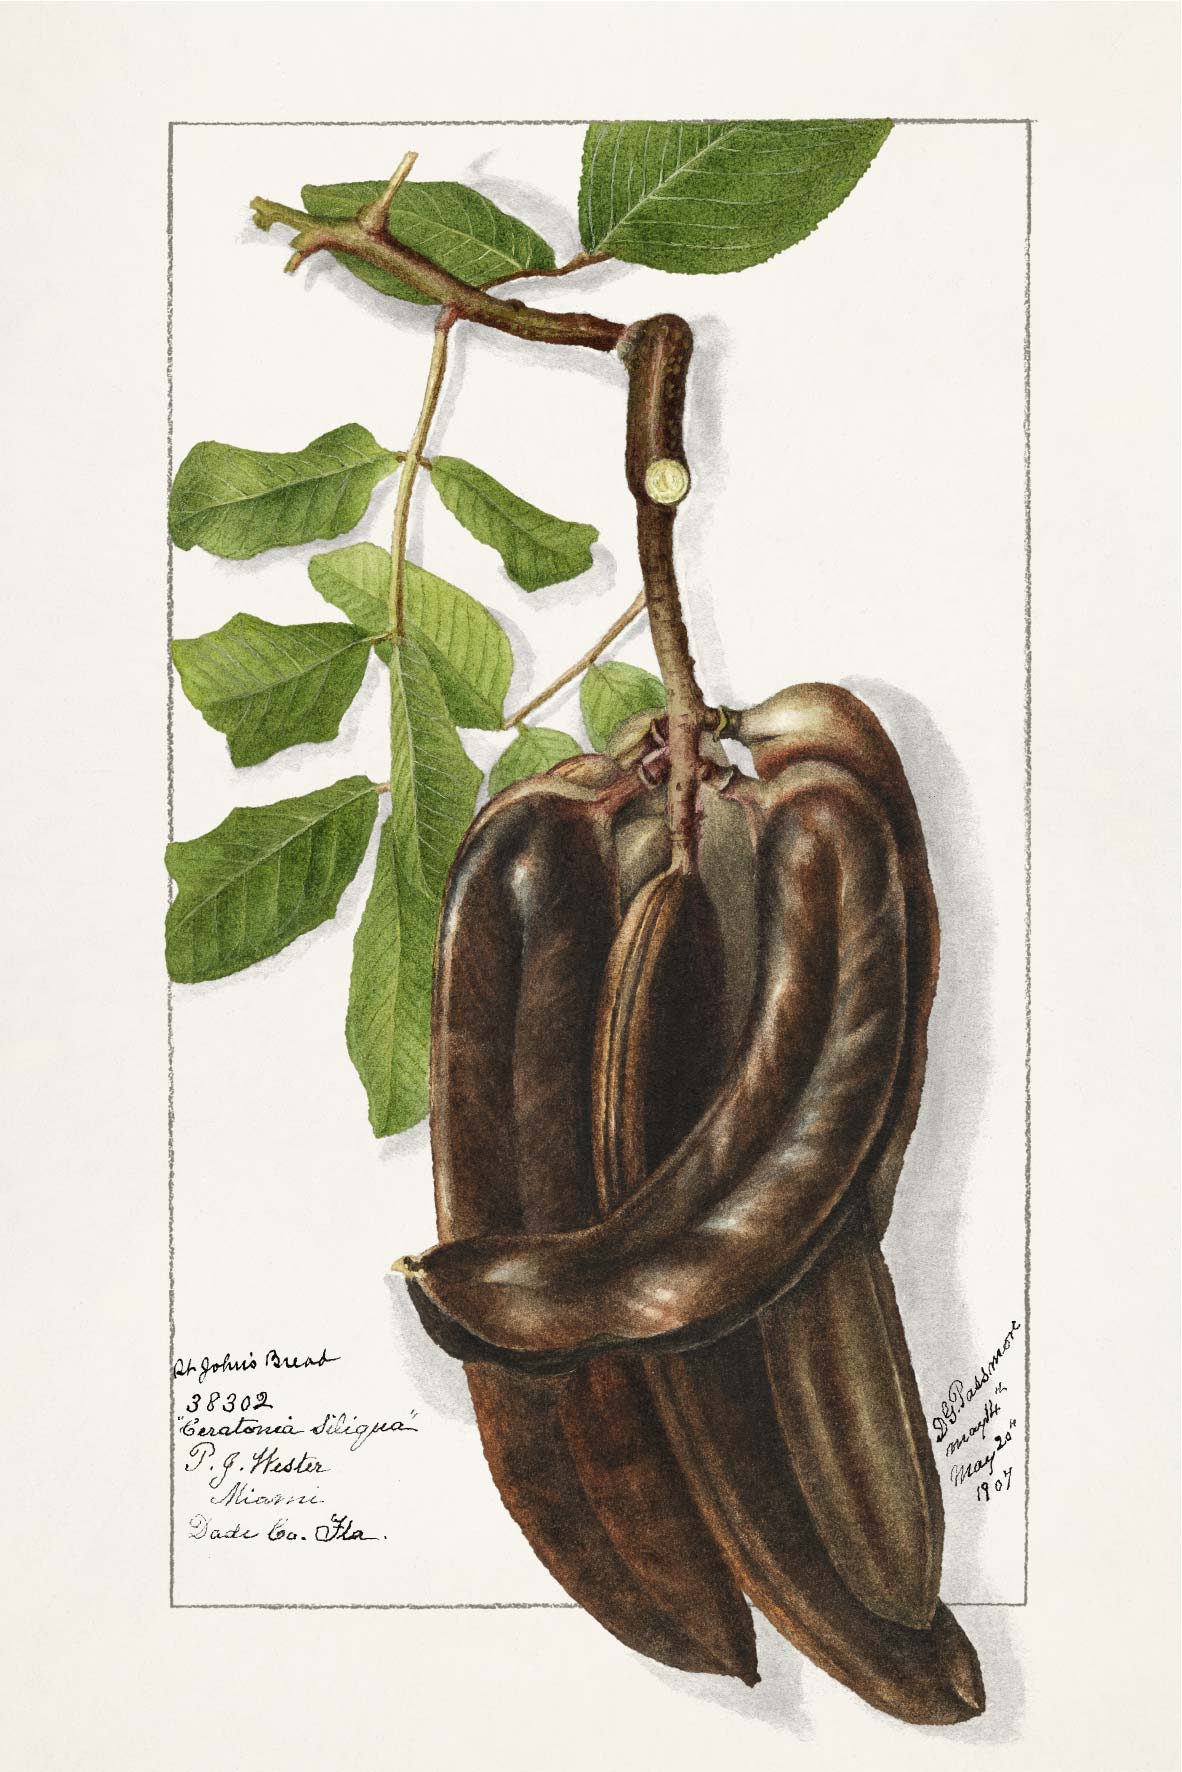 St John's Bread
38302
"Ceratonia Siliqua"
P. J. Wester
Miami
Dade Co. Fla.
D.G. Passmore
May 14"
May 20"
1907